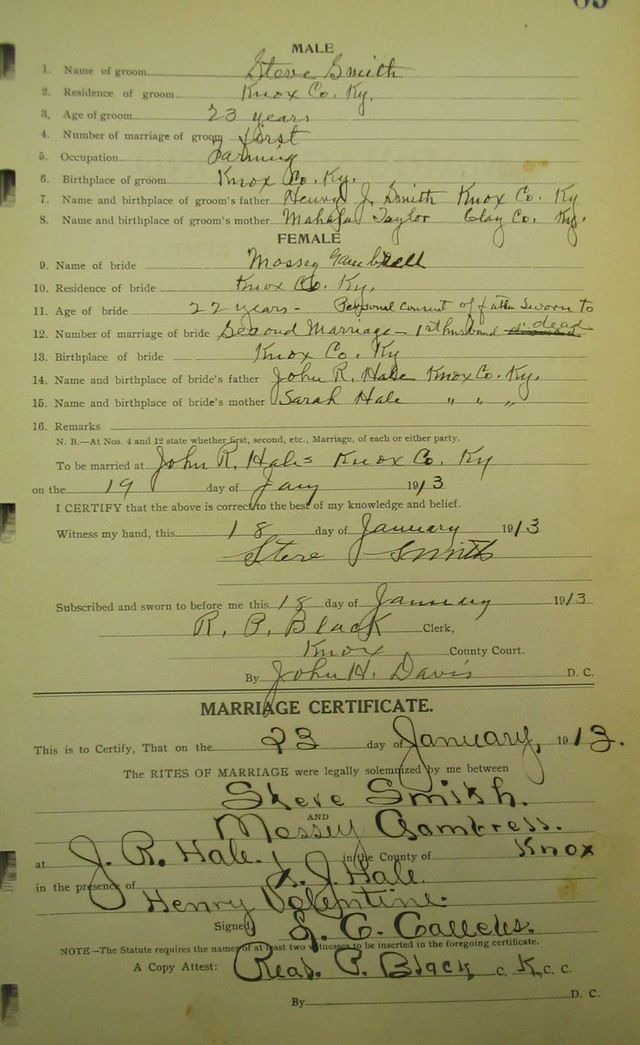 65
MALE
1. Name of groom Steve Smith
2. Residence of groom Knox Co. Ky.
3. Age of groom 23 years
4. Number of marriage of groom first
5. Occupation Farming
6. Birthplace of groom Knox Co. Ky.
7. Name and birthplace of groom's father Henry J. Smith Knox Co. Ky
8. Name and birthplace of groom's mother Mahala Taylor Clay Co. Ky.
FEMALE
9. Name of bride Mossey
10. Residence of bride Knox Co. Ky.
11. Age of bride 22 years - Personal consent of father Sworn to
12. Number of marriage of bride Second Marriage - 1st husband dead
13. Birthplace of bride Knox Co. Ky
14. Name and birthplace of bride's father John R. Hale Knox Co. Ky.
15. Name and birthplace of bride's mother Sarah Hale " " "
16. Remarks
N. B.—At Nos. 4 and 12 state whether first, second, etc., Marriage, of each or either party.
To be married at John R. Hales Knox Co. Ky
on the 19 day of Jany 1913
I CERTIFY that the above is correct to the best of my knowledge and belief.
Witness my hand, this 18 day of January 1913
Steve Smith
Subscribed and sworn to before me this 18 day of January 1913
R. P. Black Clerk,
Knox County Court.
By John H. Davis D. C.
MARRIAGE CERTIFICATE.
This is to Certify, That on the 23 day of January, 1913.
The RITES OF MARRIAGE were legally solemnized by me between
Steve Smith.
AND
Mossey
at J. R. Hale. in the County of Knox
in the presence of J. Hale.
Henry Valentine.
Signed
NOTE—The Statute requires the names of at least two witnesses to be inserted in the foregoing certificate.
A Copy Attest: Read. P. Black C. K. C. C.
By D. C.